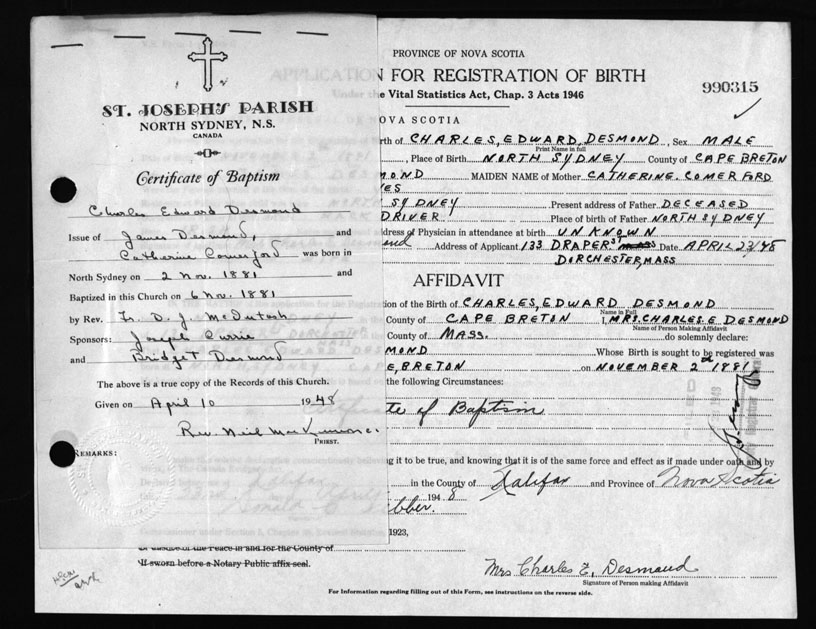 ST. JOSEPH'S PARISH
NORTH SYDNEY, N.S.
CANADA
Certificate of Baptism
Charles Edward Desmond
Issue of James Desmond, and
Catherine Comerford was born in
North Sydney on 2 Nov. 1881 and
Baptized in this Church on 6 Nov. 1881
by Rev. Fr. D. J. McIntosh
Sponsors: Joseph Currie
and Bridget Desmond
The above is a true copy of the Records of this Church.
Given on April 10 1948
Rev. Neil
PRIEST.
REMARKS:
PROVINCE OF NOVA SCOTIA
APPLICATION FOR REGISTRATION OF BIRTH
Under the Vital Statistics Act, Chap. 3 Acts 1946
990315
OVA SCOTIA
rth of CHARLES, EDWARD, DESMOND, Sex MALE
Print Name in full
, Place of Birth NORTH SYDNEY County of CAPE BRETON
MOND MAIDEN NAME of Mother CATHERINE. COMERFORD
YES
SYDNEY Present address of Father DECEASED
DRIVER Place of birth of Father NORTH SYDNEY
ddress of Physician in attendance at birth UNKNOWN
Address of Applicant 133 DRAPER ST Date APRIL 23/48
DORCHESTER, MASS
AFFIDAVIT
tion of the Birth of CHARLES, EDWARD DESMOND
Name in Full
County of CAPE BRETON I, MRS. CHARLES. E DESMOND
Name of Person Making Affidavit
County of MASS. do solemnly declare:
MOND Whose Birth is sought to be registered was
E, BRETON on NOVEMBER 2nd 1881
the following Circumstances:
te of Baptism
g it to be true, and knowing that it is of the same force and effect as if made under oath and by
in the County of Halifax and Province of Nova Scotia
1948
1923,
or Justice of the Peace in and for the County of
If sworn before a Notary Public affix seal.
Mrs Charles E. Desmond
Signature of Person making Affidavit
For Information regarding filling out of this Form, see instructions on the reverse side.